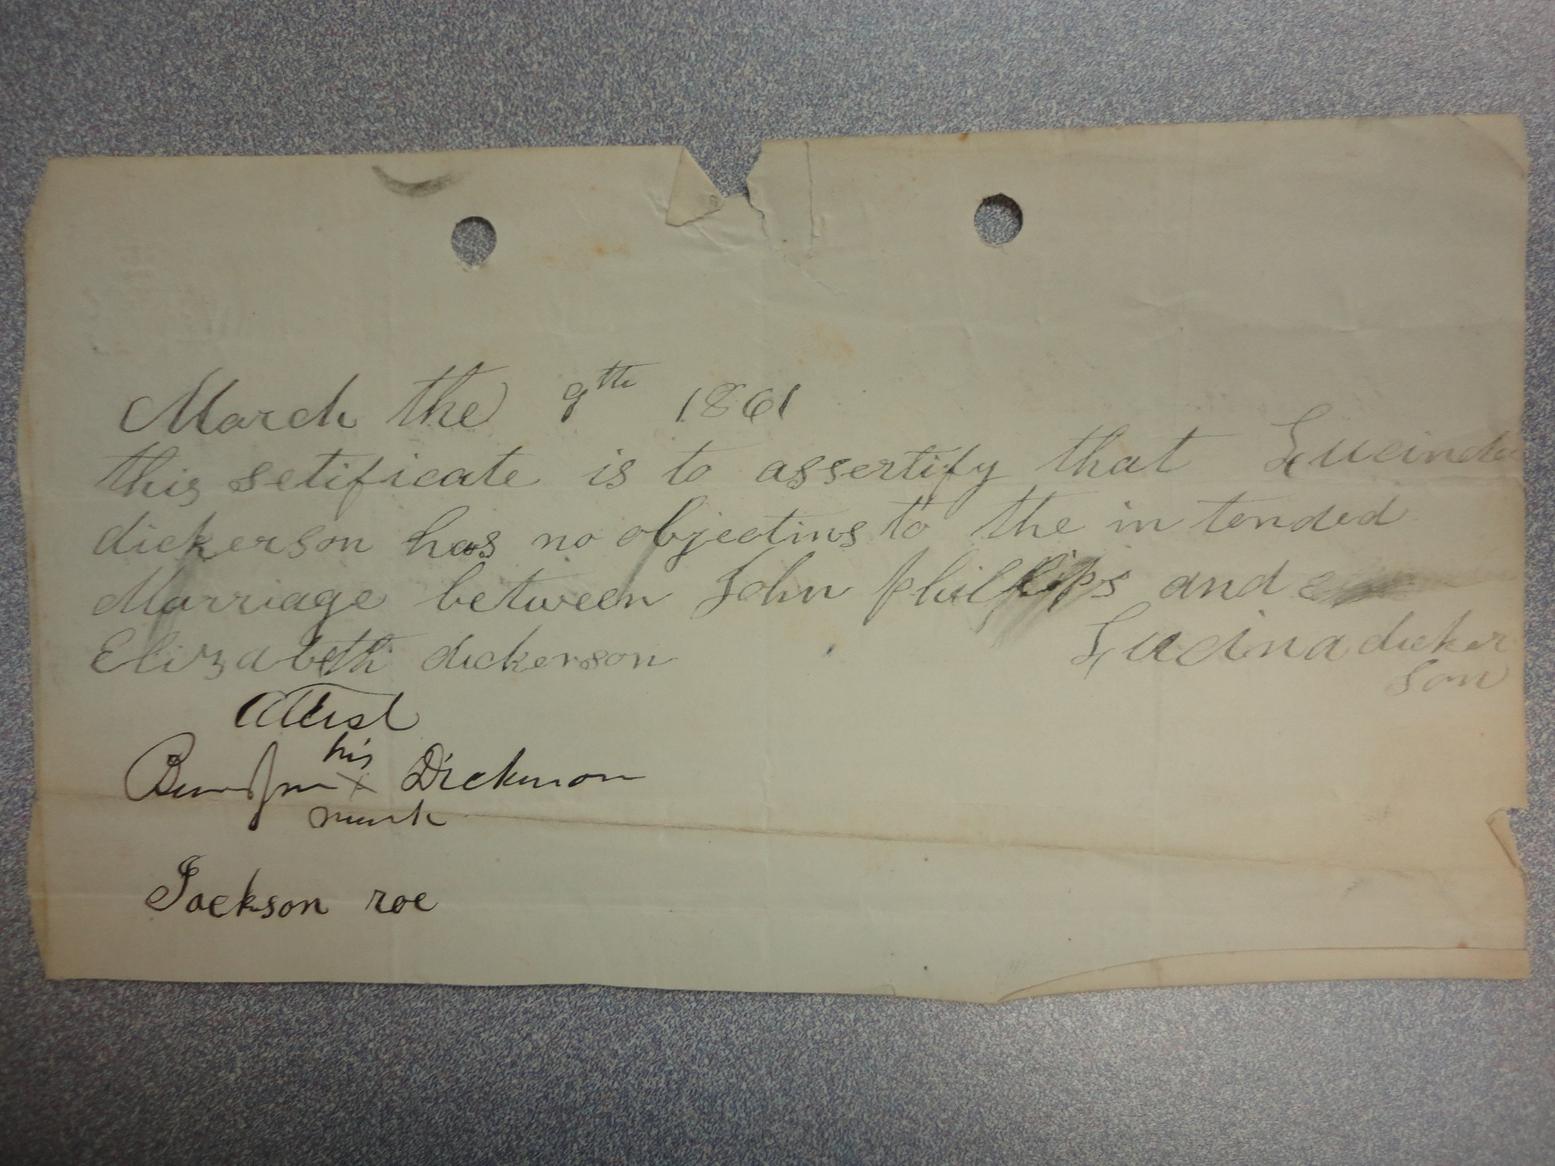 March the 9th 1861
this setificate is to assertify that Lucinda
dickerson has no objectins to the in tended
Marriage between John phillips and
Elizabeth dickerson Lucina dicker
son
Attest
his
Benjmn X Dickerson
mark
Jackson roe